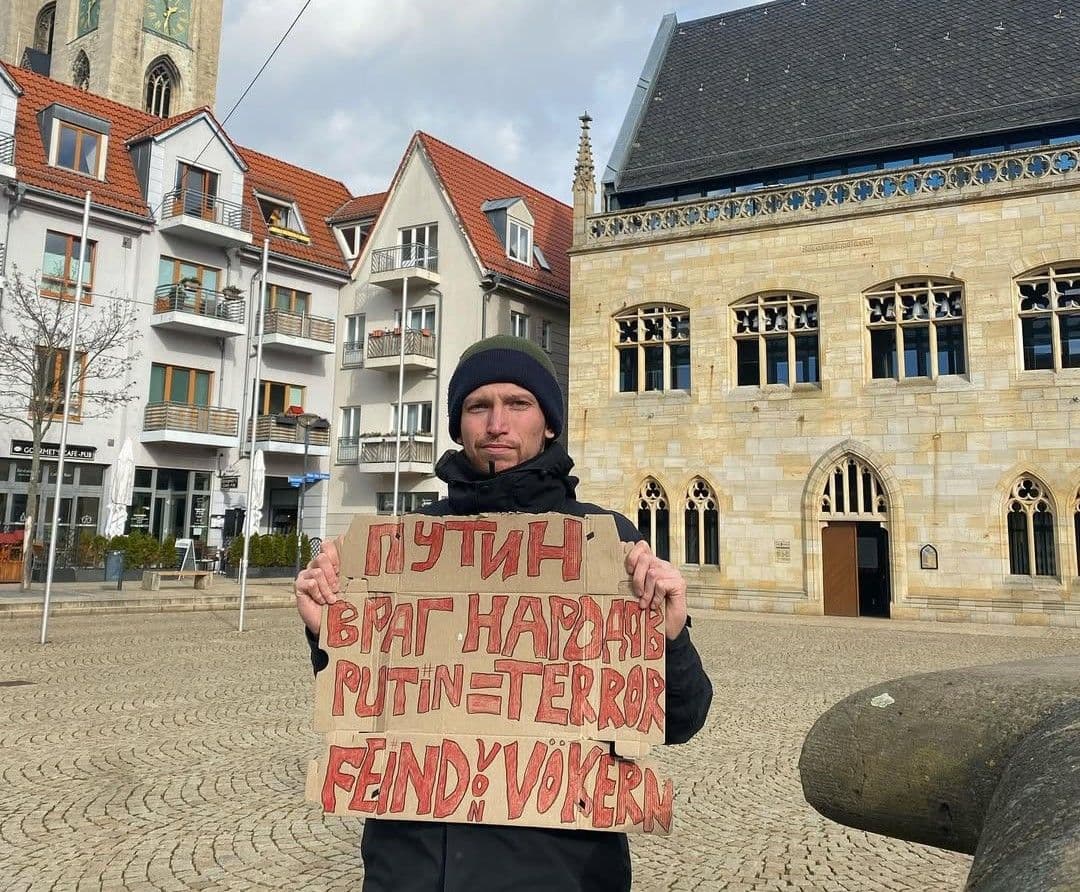 GOURMET'S CAFE-PUB
ПУТИН
ВРАГ НАРОДОВ
PUTiN=TERROR
FEiND VON VÖKERN